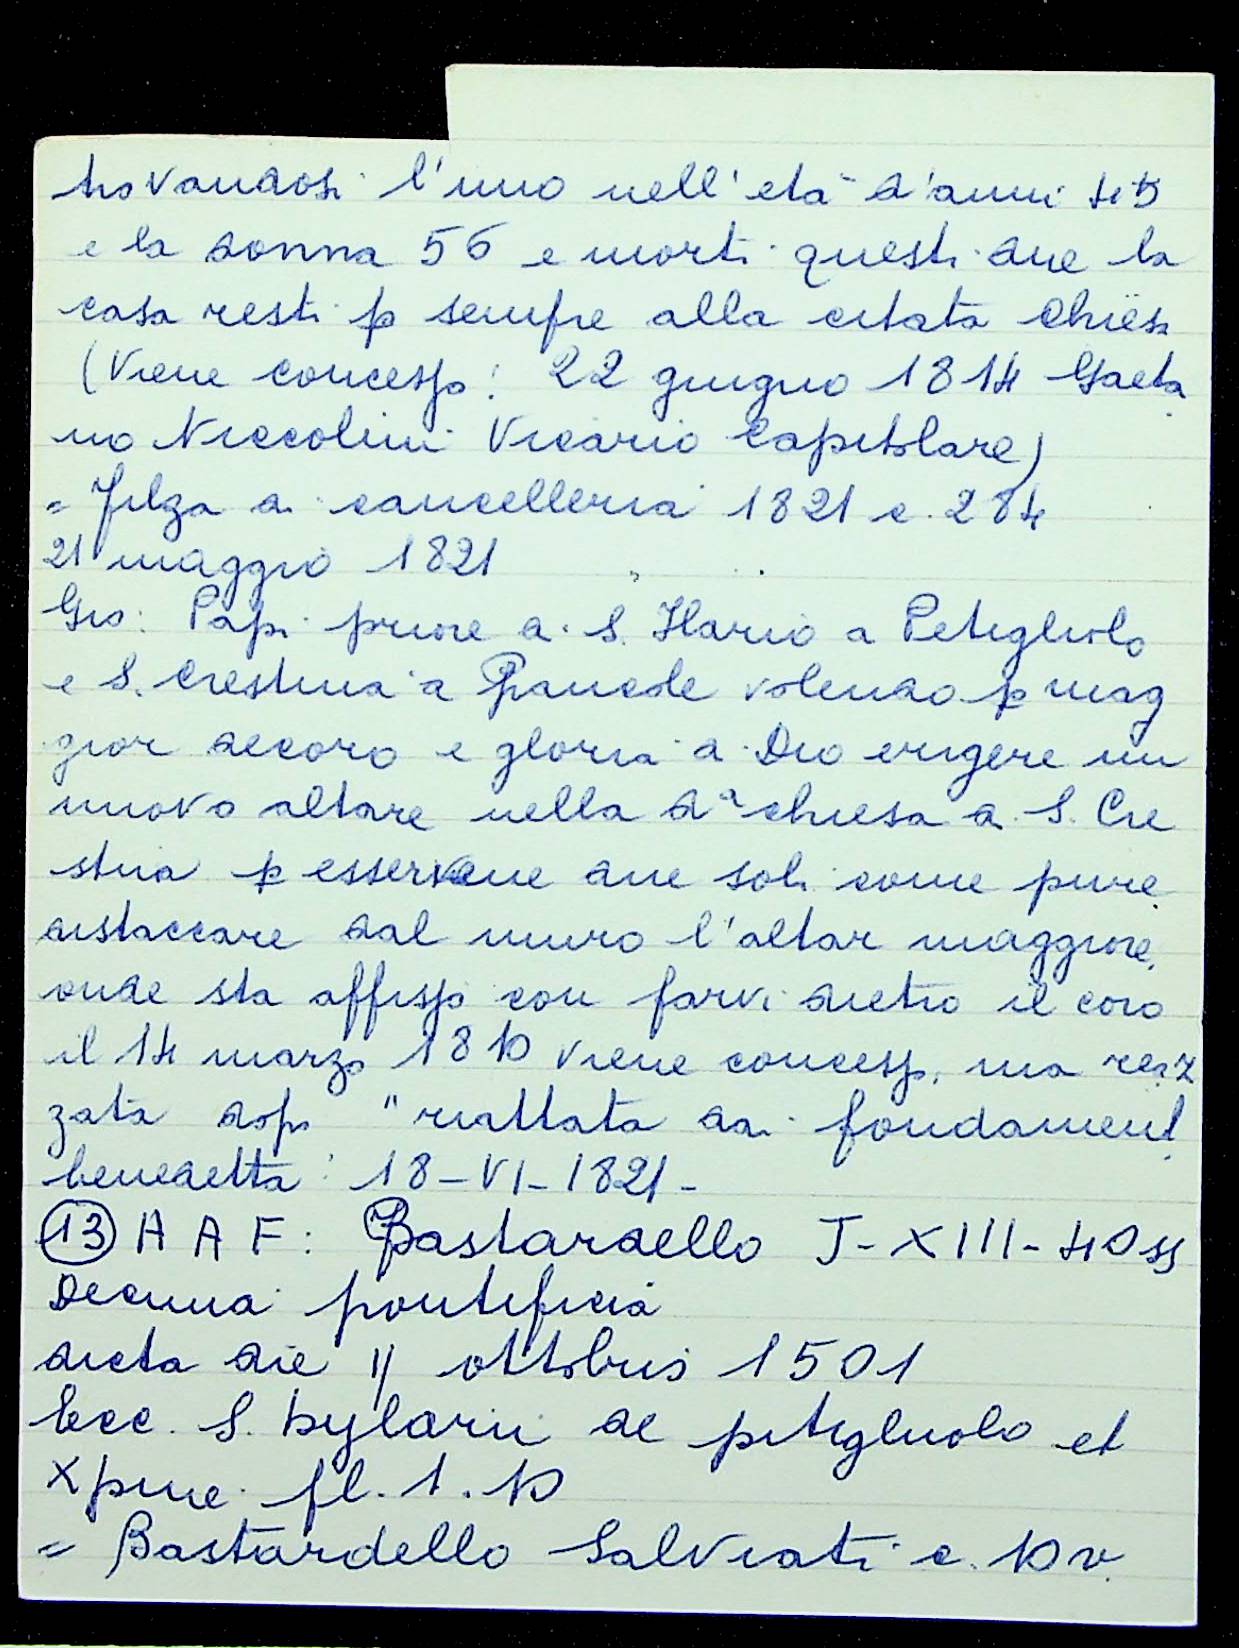 trovandosi l'uno nell'età d'anni 45
e la donna 56 e morti questi due la
casa resti p sempre alla citata Chiesa
(Viene concesso: 22 giugno 1814 Gaeta
no Niccolini Vicario Capitolare)
= Filza di cancelleria 1821 c. 284
21 maggio 1821
Gio: Papi priore di S. Ilario a Petigliolo
e S. Crestina a Pancole volendo p mag
gior decoro e gloria di Dio erigere un
nuovo altare nella dª chiesa di S. Cre
stina p esservene due soli come pure
distaccare dal muro l'altar maggiore
onde sta affisso con farvi dietro il coro
il 14 marzo 1810 viene concesso, ma
zata dopo "riattata dai fondament
benedetta: 18-VI-1821-
(13) A A F: Bastardello J-XIII-40ss
Decima pontificia
dicta die 11 ottobris 1501
Ecc. S. hylarii de pitigliuolo et
Xpine fl. 1. 10
= Bastardello Salviati c. 10 v.